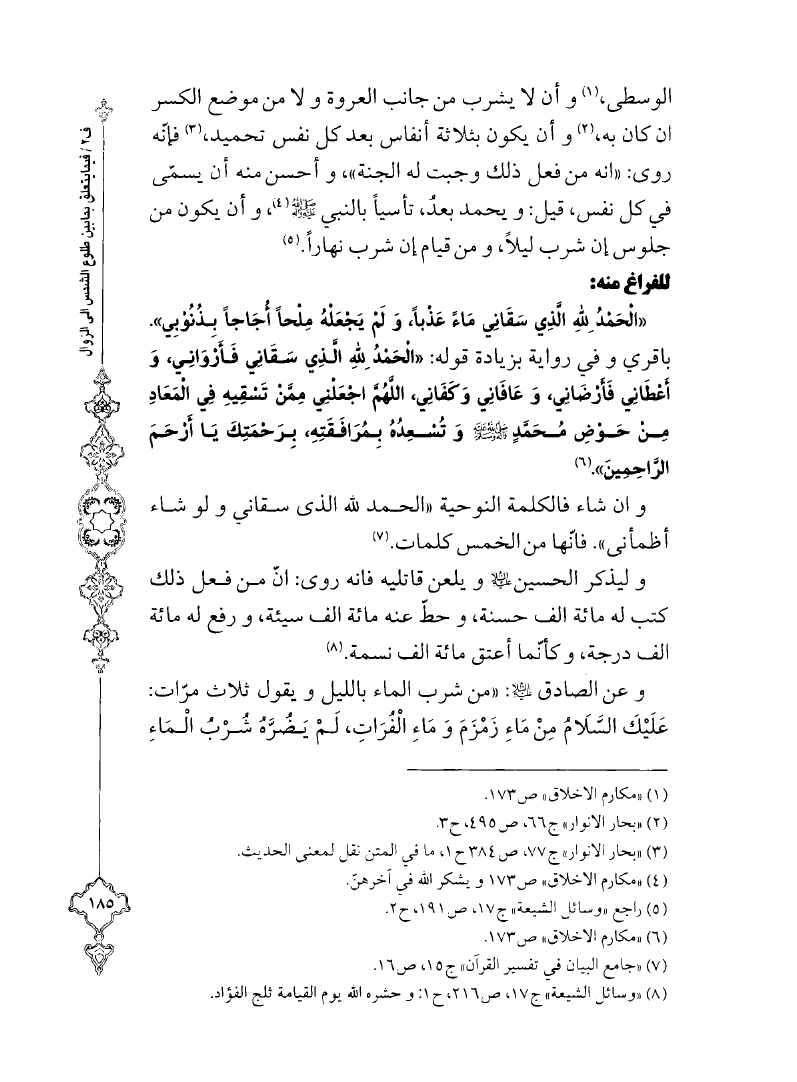 الوسطى،(١) و أن لا يشرب من جانب العروة و لا من موضع الكسر
ان كان به،(٢) و أن يكون بثلاثة أنفاس بعد كل نفس تحميد،(٣) فإنّه
روى: «انه من فعل ذلك وجبت له الجنة»، و أحسن منه أن يسمّى
في كل نفس، قيل: و يحمد بعدُ، تأسياً بالنبي ﷺ(٤)، و أن يكون من
جلوس إن شرب ليلاً، و من قيام إن شرب نهاراً.(٥)
للفراغ منه:
«الْحَمْدُ لِلّهِ الَّذِي سَقَانِي مَاءً عَذْباً، وَ لَمْ يَجْعَلْهُ مِلْحاً أُجَاجاً بِذُنُوْبِي».
باقري و في رواية بزيادة قوله: «الْحَمْدُ لِلّهِ الَّذِي سَقَانِي فَأَرْوَانِي، وَ
أَعْطَانِي فَأَرْضَانِي، وَ عَافَانِي وَكَفَانِي، اللّهُمَّ اجْعَلْنِي مِمَّنْ تَسْقِيهِ فِي الْمَعَادِ
مِنْ حَوْضِ مُحَمَّدٍ ﷺ وَ تُسْعِدُهُ بِمُرَافَقَتِهِ، بِرَحْمَتِكَ يَا أَرْحَمَ
الرَّاحِمِينَ».(٦)
و ان شاء فالكلمة النوحية «الحمد لله الذى سقاني و لو شاء
أظمأنى». فانّها من الخمس كلمات.(٧)
و ليذكر الحسين عليه السلام و يلعن قاتليه فانه روى: انّ من فعل ذلك
كتب له مائة الف حسنة، و حطّ عنه مائة الف سيئة، و رفع له مائة
الف درجة، و كأنّما أعتق مائة الف نسمة.(٨)
و عن الصادق عليه السلام: «من شرب الماء بالليل و يقول ثلاث مرّات:
عَلَيْكَ السَّلاَمُ مِنْ مَاءِ زَمْزَمَ وَ مَاءِ الْفُرَاتِ، لَمْ يَضُرَّهُ شُرْبُ الْمَاءِ
(١) «مكارم الاخلاق» ص١٧٣.
(٢) «بحار الانوار» ج٦٦، ص٤٩٥، ح٣.
(٣) «بحار الانوار» ج٧٧، ص٣٨٤ ح١، ما في المتن نقل لمعنى الحديث.
(٤) «مكارم الاخلاق» ص١٧٣ و يشكر الله في آخرهنّ.
(٥) راجع «وسائل الشيعة» ج١٧، ص١٩١، ح٢.
(٦) «مكارم الاخلاق» ص١٧٣.
(٧) «جامع البيان في تفسير القرآن» ج١٥، ص١٦.
(٨) «وسائل الشيعة» ج١٧، ص٢١٦، ح١: و حشره الله يوم القيامة ثلج الفؤاد.
ف٢ / فيما يتعلق بما بين طلوع الشمس الى الزوال
١٨٥